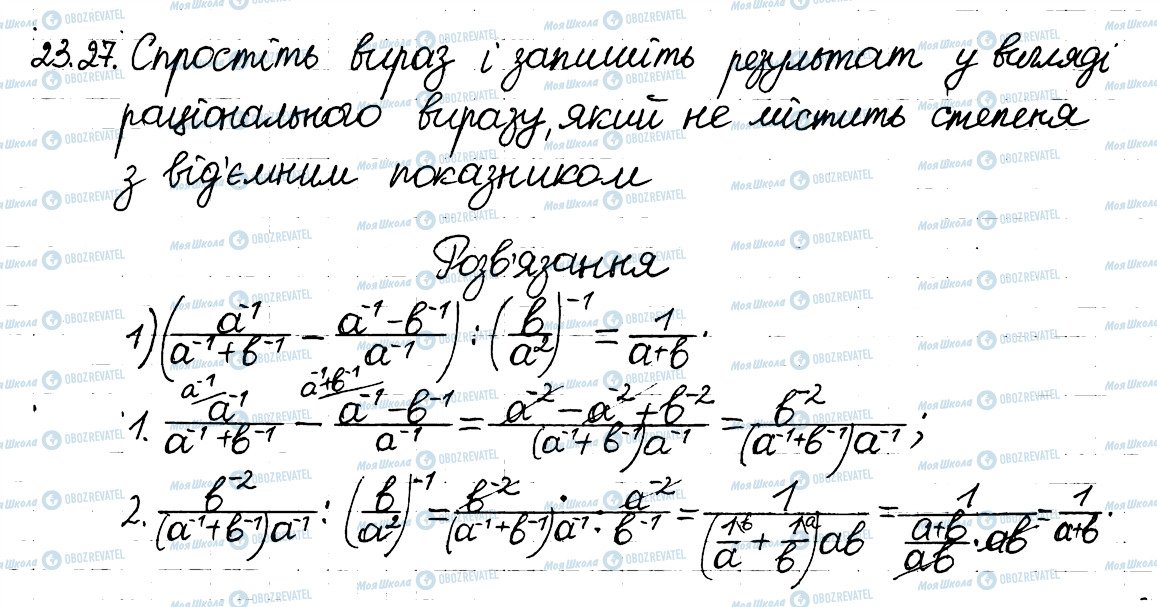 23.27. Спростіть вираз і запишіть результат у вигляді
раціонального виразу, який не містить степеня
з від'ємним показником
Розв'язання
1) (a⁻¹/(a⁻¹+b⁻¹) − (a⁻¹−b⁻¹)/a⁻¹) : (b/a²)⁻¹ = 1/(a+b).
1. a⁻¹/(a⁻¹+b⁻¹) − (a⁻¹−b⁻¹)/a⁻¹ = (a⁻²−a⁻²+b⁻²)/((a⁻¹+b⁻¹)a⁻¹) = b⁻²/((a⁻¹+b⁻¹)a⁻¹);
2. b⁻²/((a⁻¹+b⁻¹)a⁻¹) : (b/a²)⁻¹ = b⁻²/((a⁻¹+b⁻¹)a⁻¹) : a⁻²/b⁻¹ = 1/((1/a+1/b)ab) = 1/((a+b)/ab · ab) = 1/(a+b).
Моя Школа OBOZREVATEL